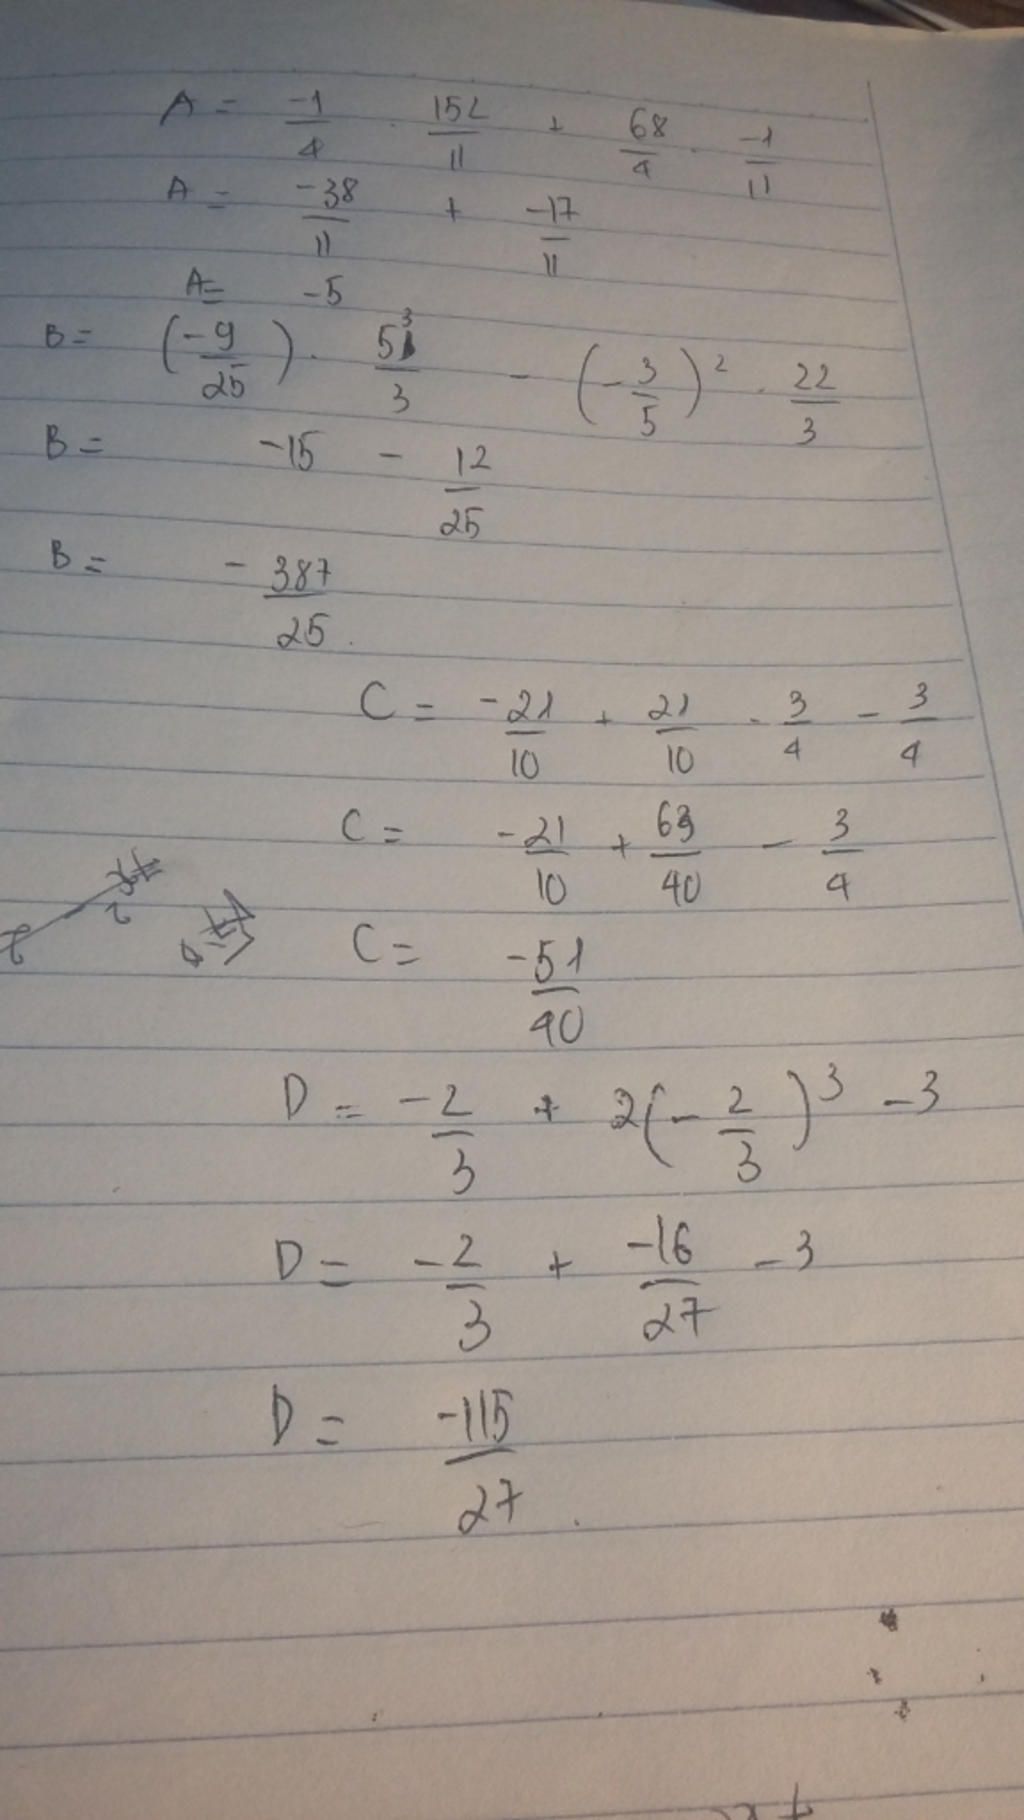 A = -1/4 · 152/11 + 68/4 · -1/11
A = -38/11 + -17/11
A = -5
B = (-9/25) · 53/3 - (-3/5)² · 22/3
B = -15 - 12/25
B = -387/25.
C = -21/10 + 21/10 · 3/4 - 3/4
C = -21/10 + 63/40 - 3/4
C = -51/40
D = -2/3 + 2(-2/3)³ - 3
D = -2/3 + -16/27 - 3
D = -115/27.